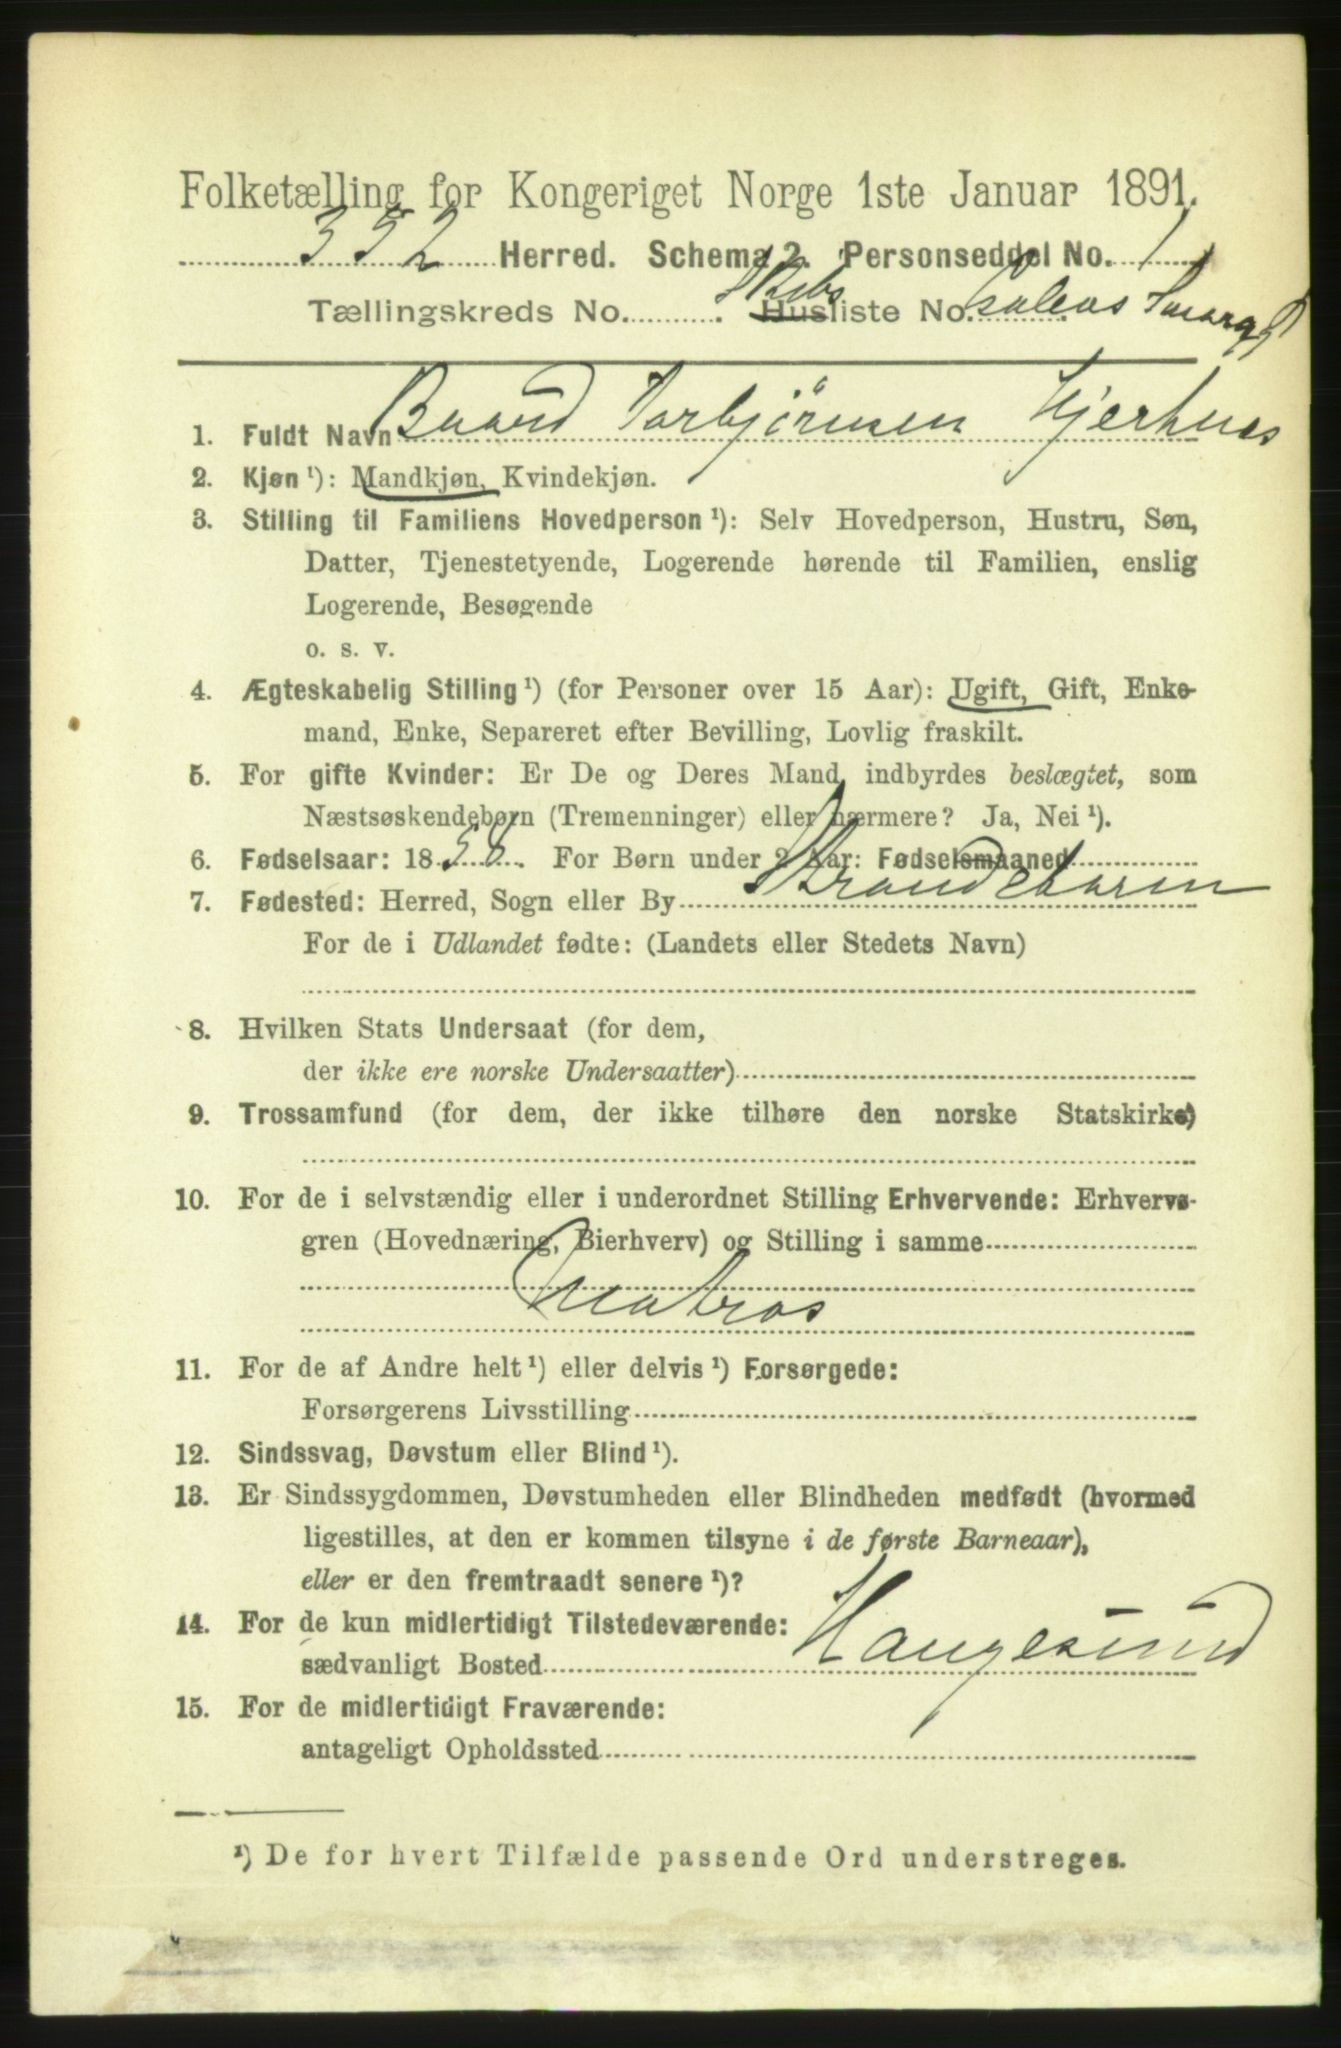 Folketælling for Kongeriget Norge 1ste Januar 1891.
352 Herred. Schema 2. Personseddel No. 1
Tællingskreds No. . Skibs Husliste No. Galeas Smaragd
1. Fuldt Navn Baard Torbjörnsen Hjerhus
2. Kjøn¹): Mandkjøn, Kvindekjøn.
3. Stilling til Familiens Hovedperson¹): Selv Hovedperson, Hustru, Søn,
Datter, Tjenestetyende, Logerende hørende til Familien, enslig
Logerende, Besøgende
o. s. v.
4. Ægteskabelig Stilling¹) (for Personer over 15 Aar): Ugift, Gift, Enke-
mand, Enke, Separeret efter Bevilling, Lovlig fraskilt.
5. For gifte Kvinder: Er De og Deres Mand indbyrdes beslægtet, som
Næstsøskendebørn (Tremenninger) eller nærmere? Ja, Nei¹).
6. Fødselsaar: 18 . For Børn under 2 Aar: Fødselsmaaned
7. Fødested: Herred, Sogn eller By Strandebarm
For de i Udlandet fødte: (Landets eller Stedets Navn)
8. Hvilken Stats Undersaat (for dem,
der ikke ere norske Undersaatter)
9. Trossamfund (for dem, der ikke tilhøre den norske Statskirke)
10. For de i selvstændig eller i underordnet Stilling Erhvervende: Erhvervs-
gren (Hovednæring, Bierhverv) og Stilling i samme
Matros
11. For de af Andre helt¹) eller delvis¹) Forsørgede:
Forsørgerens Livsstilling
12. Sindssvag, Døvstum eller Blind¹).
13. Er Sindssygdommen, Døvstumheden eller Blindheden medfødt (hvormed
ligestilles, at den er kommen tilsyne i de første Barneaar),
eller er den fremtraadt senere¹)?
14. For de kun midlertidigt Tilstedeværende:
sædvanligt Bosted Haugesund
15. For de midlertidigt Fraværende:
antageligt Opholdssted
¹) De for hvert Tilfælde passende Ord understreges.